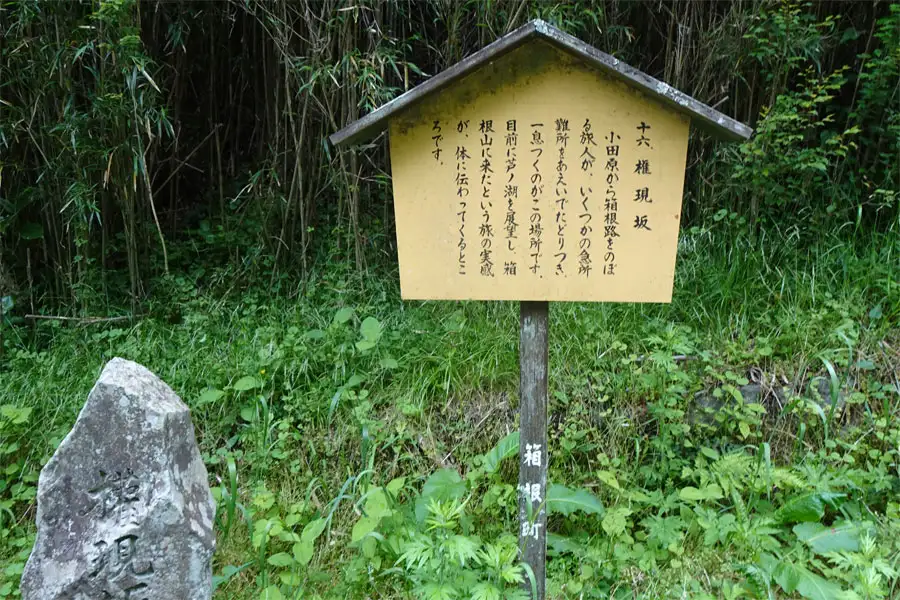 十六 権現坂
小田原から箱根路をのぼ
る旅人が、いくつかの急所
難所をあえいでたどりつき
一息つくのがこの場所です。
目前に芦ノ湖を展望し、箱
根山に来たという旅の実感
が、体に伝わってくるとこ
ろです。
箱根町
権現坂